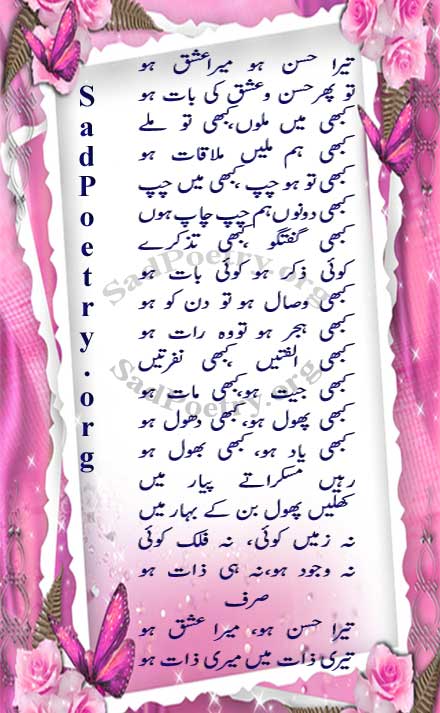 تیرا حسن ہو میراعشق ہو
تو پھرحسن وعشق کی بات ہو
کبھی میں ملوں،کبھی تو ملے
کبھی ہم ملیں ملاقات ہو
کبھی تو ہو چپ ،کبھی میں چپ
کبھی دونوں ہم چپ چاپ ہوں
کبھی گفتگو ،کبھی تذکرے
کوئی ذکر ہو کوئی بات ہو
کبھی وصال ہو تو دن کو ہو
کبھی ہجر ہو تو وہ رات ہو
کبھی الفتیں ،کبھی نفرتیں
کبھی جیت ہو،کبھی مات ہو
کبھی پھول ہو، کبھی دھول ہو
کبھی یاد ہو، کبھی بھول ہو
رہیں مسکراتے پیار میں
کھلیں پھول بن کے بہار میں
نہ زمیں کوئی، نہ فلک کوئی
نہ وجود ہو،نہ ہی ذات ہو
صرف
تیرا حسن ہو، میرا عشق ہو
تیری ذات میں میری ذات ہو
SadPoetry.org
SadPoetry.org
SadPoetry.org